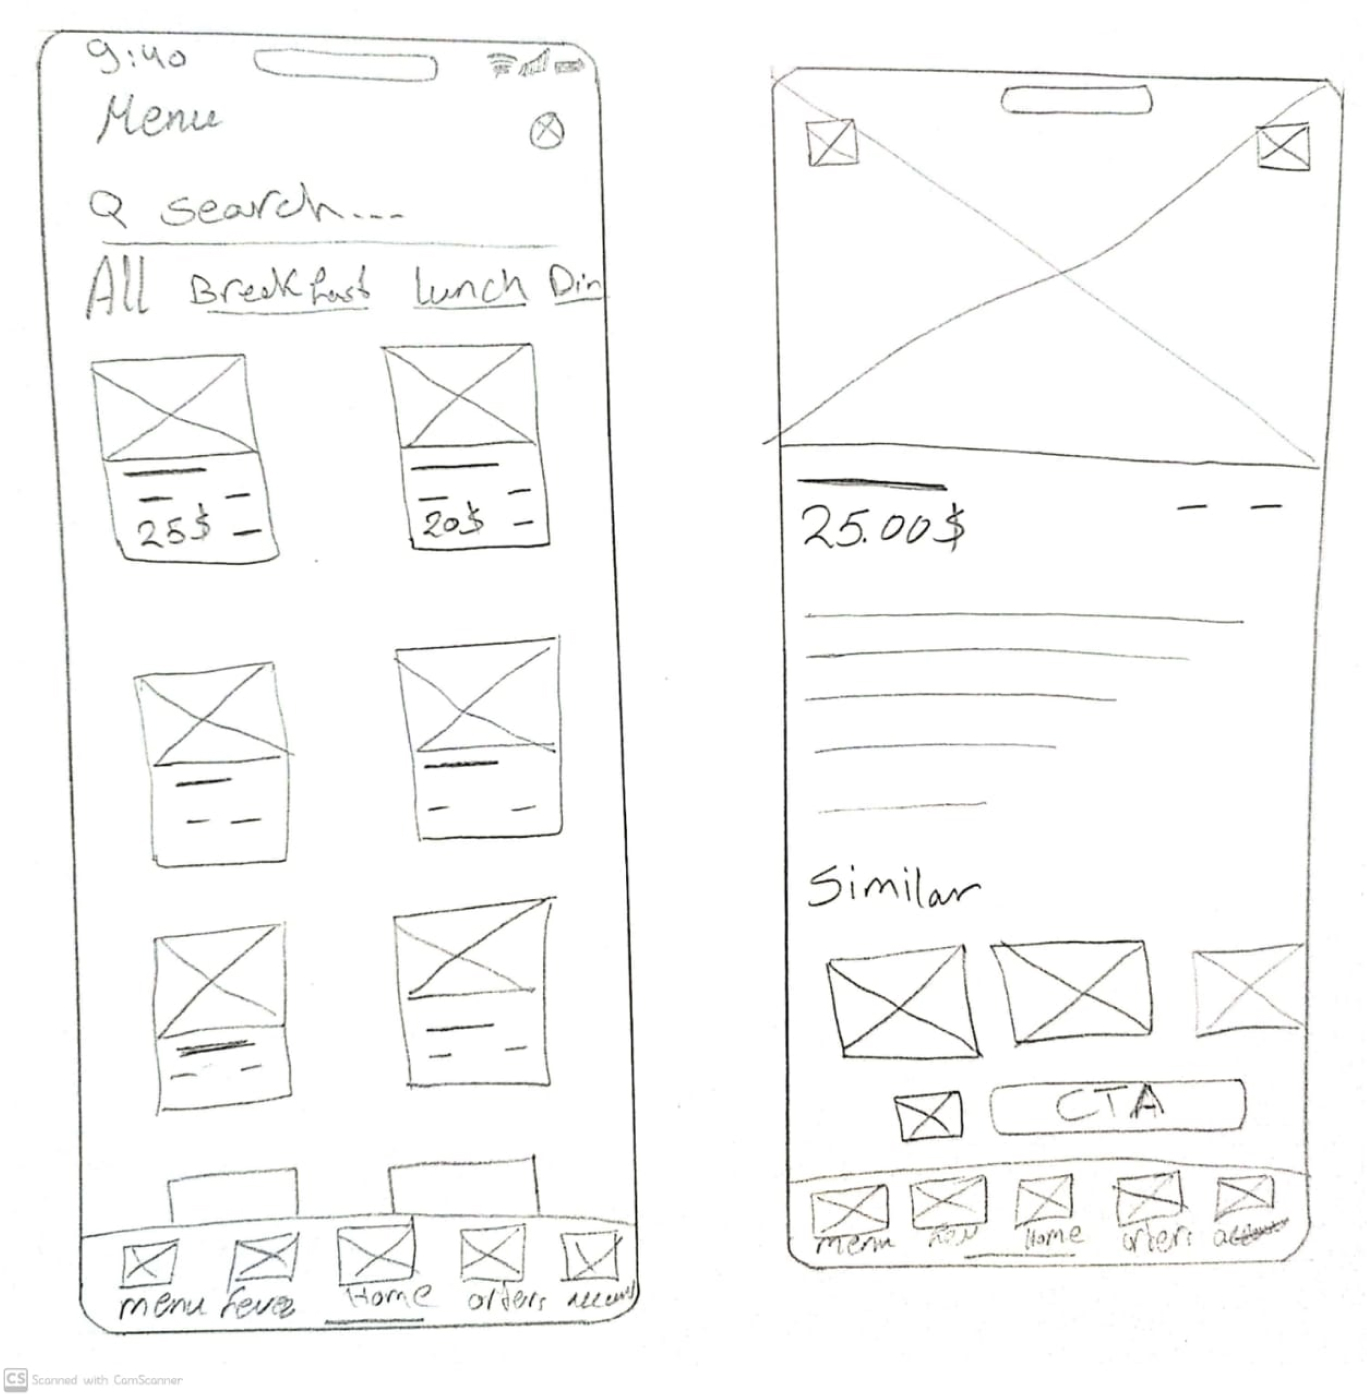 9:40
Menu
search...
All Breakfast Lunch Din
25$ 20$
menu Home orders
25.00$
Similar
CTA
menu Home orders
CS Scanned with CamScanner